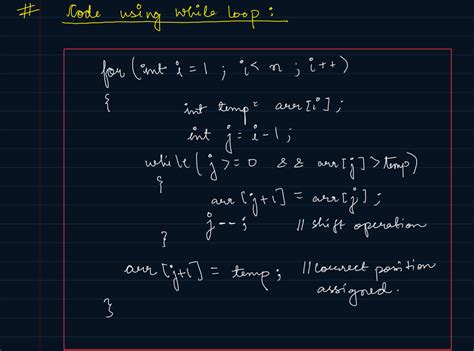 # Code using while loop :
for (int i = 1 ; i < n ; i++)
{
int temp = arr[i] ;
int j = i - 1 ;
while ( j >= 0 && arr[j] > temp)
{
arr [j+1] = arr[j] ;
j-- ; // shift operation
}
arr[j+1] = temp ; // correct position
assigned.
}